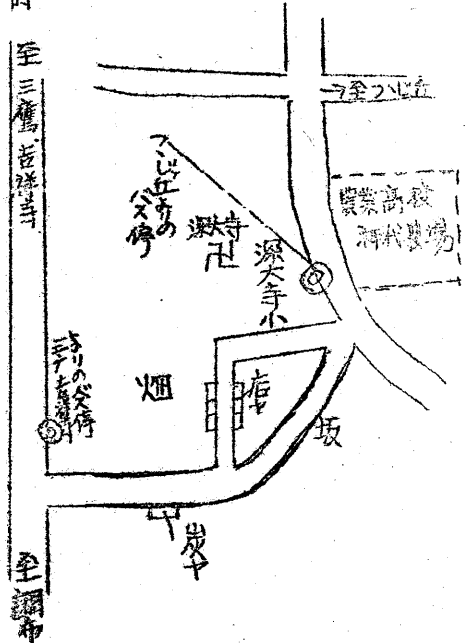 至三鷹、吉祥寺
→至つつじヶ丘
つつじヶ丘よりの
バス停
深大寺
卍
深大寺小
農業高校
神代農場
よりのバス停
三タカ吉祥寺
畑
店
坂
炭ヤ
至調布